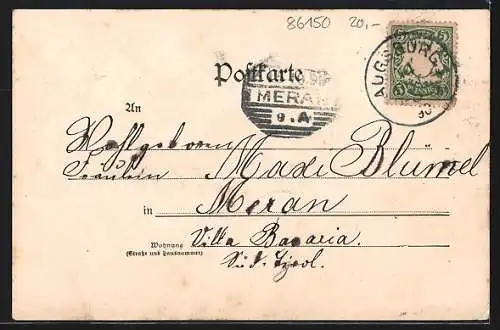 86150 20,-
5 5
5 5
AUGSBURG
Postkarte
MERAN
9.A
An
Hochgeboren
Fräulein Maxi Blümel
in Meran
Wohnung Villa Bavaria.
(Straße und Hausnummer)
Süd-Tirol.